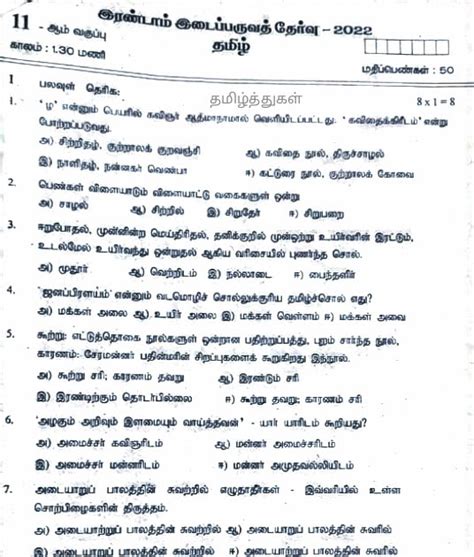 இரண்டாம் இடைப்பருவத் தேர்வு – 2022
11 - ஆம் வகுப்பு
தமிழ்
காலம் : 1.30 மணி
மதிப்பெண்கள் : 50
1 பலவுள் தெரிக:
தமிழ்த்துகள்
8 x 1 = 8
1. 'ழ' என்னும் பெயரில் கவிஞர் ஆத்மாநாமால் வெளியிடப்பட்டது. 'கவிதைக்கிரீடம்' என்று
போற்றப்படுவது.
அ) சிற்றிதழ், குற்றாலக் குறவஞ்சி ஆ) கவிதை நூல், திருச்சாழல்
இ) நாளிதழ், நன்னகர் வெண்பா ஈ) கட்டுரை நூல், குற்றாலக் கோவை
2. பெண்கள் விளையாடும் விளையாட்டு வகைகளுள் ஒன்று
அ) சாழல் ஆ) சிற்றில் இ) சிறுதேர் ஈ) சிறுபறை
3. ஈறுபோதல், முன்னின்ற மெய்திரிதல், தனிக்குறில் முன்ஒற்று உயிர்வரின் இரட்டும்,
உடல்மேல் உயிர்வந்து ஒன்றுதல் ஆகிய வரிசையில் புணர்ந்த சொல்.
அ) முதூர் ஆ) வெற்றிடம் இ) நல்லாடை ஈ) பைந்தளிர்
4. 'ஜனப்பிரளயம்' என்னும் வடமொழிச் சொல்லுக்குரிய தமிழ்ச்சொல் எது?
அ) மக்கள் அலை ஆ) உயிர் அலை இ) மக்கள் வெள்ளம் ஈ) மக்கள் அவை
5. கூற்று: எட்டுத்தொகை நூல்களுள் ஒன்றான பதிற்றுப்பத்து, புறம் சார்ந்த நூல்,
காரணம்: சேரமன்னர் பதின்மரின் சிறப்புகளைக் கூறுகிறது இந்நூல்.
அ) கூற்று சரி; காரணம் தவறு ஆ) இரண்டும் சரி
இ) இரண்டிற்கும் தொடர்பில்லை ஈ) கூற்று தவறு; காரணம் சரி
6. 'அழகும் அறிவும் இளமையும் வாய்த்தவன்' - யார் யாரிடம் கூறியது?
அ) அமைச்சர் கவிஞரிடம் ஆ) மன்னர் அமைச்சரிடம்
இ) அமைச்சர் மன்னரிடம் ஈ) மன்னர் அமுதவல்லியிடம்
7. அடையாறுப் பாலத்தின் சுவற்றில் எழுதாதீர்கள் - இவ்வரியில் உள்ள
சொற்பிழைகளின் திருத்தம்.
அ) அடையாற்றுப் பாலத்தின் சுவற்றில் ஆ) அடையாற்றுப் பாலத்தின் சுவரில்
இ) அடையாறு பாலத்தின் சுவற்றில் ஈ) அடையாற்றுப் பாலத்தின் சுவரில்